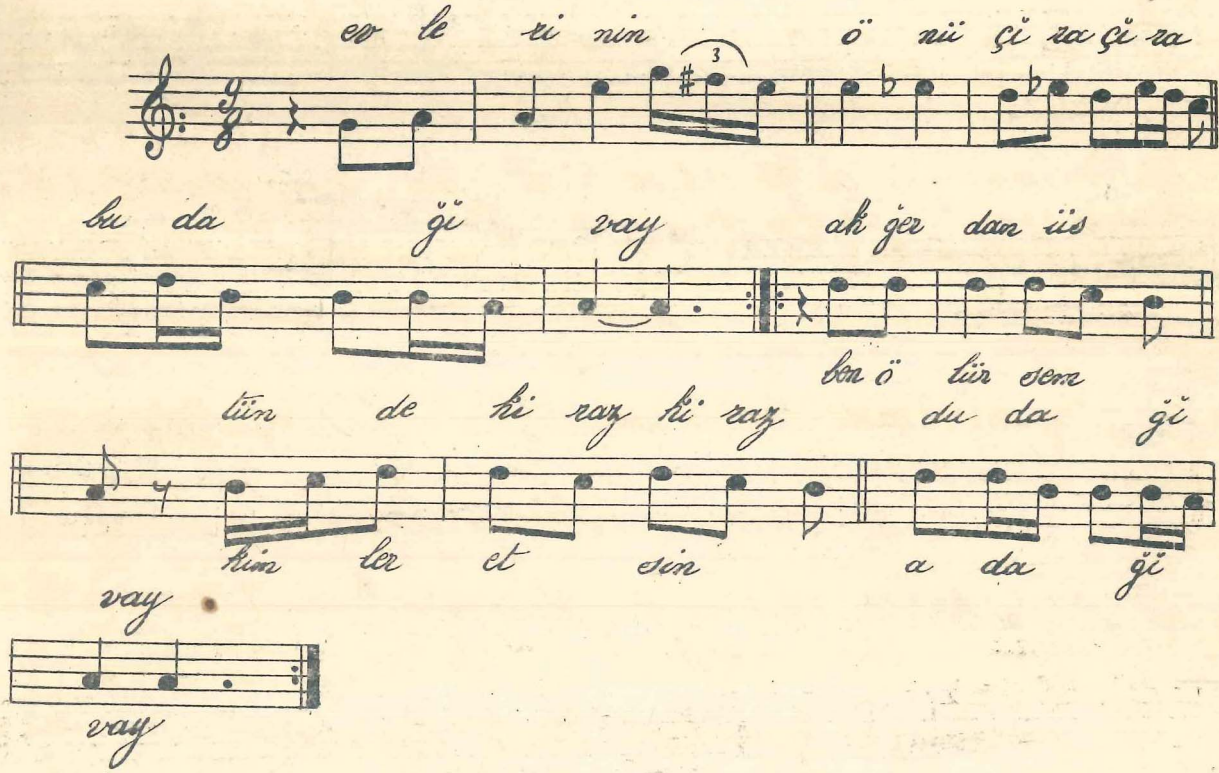 ev le ri nin ö nü çi ra çi ra
3
9
8
bu da ği vay ak ger dan üs
ben ö lür sem
tün de ki raz ki raz du da ği
kim ler et sin a da ği
vay
vay